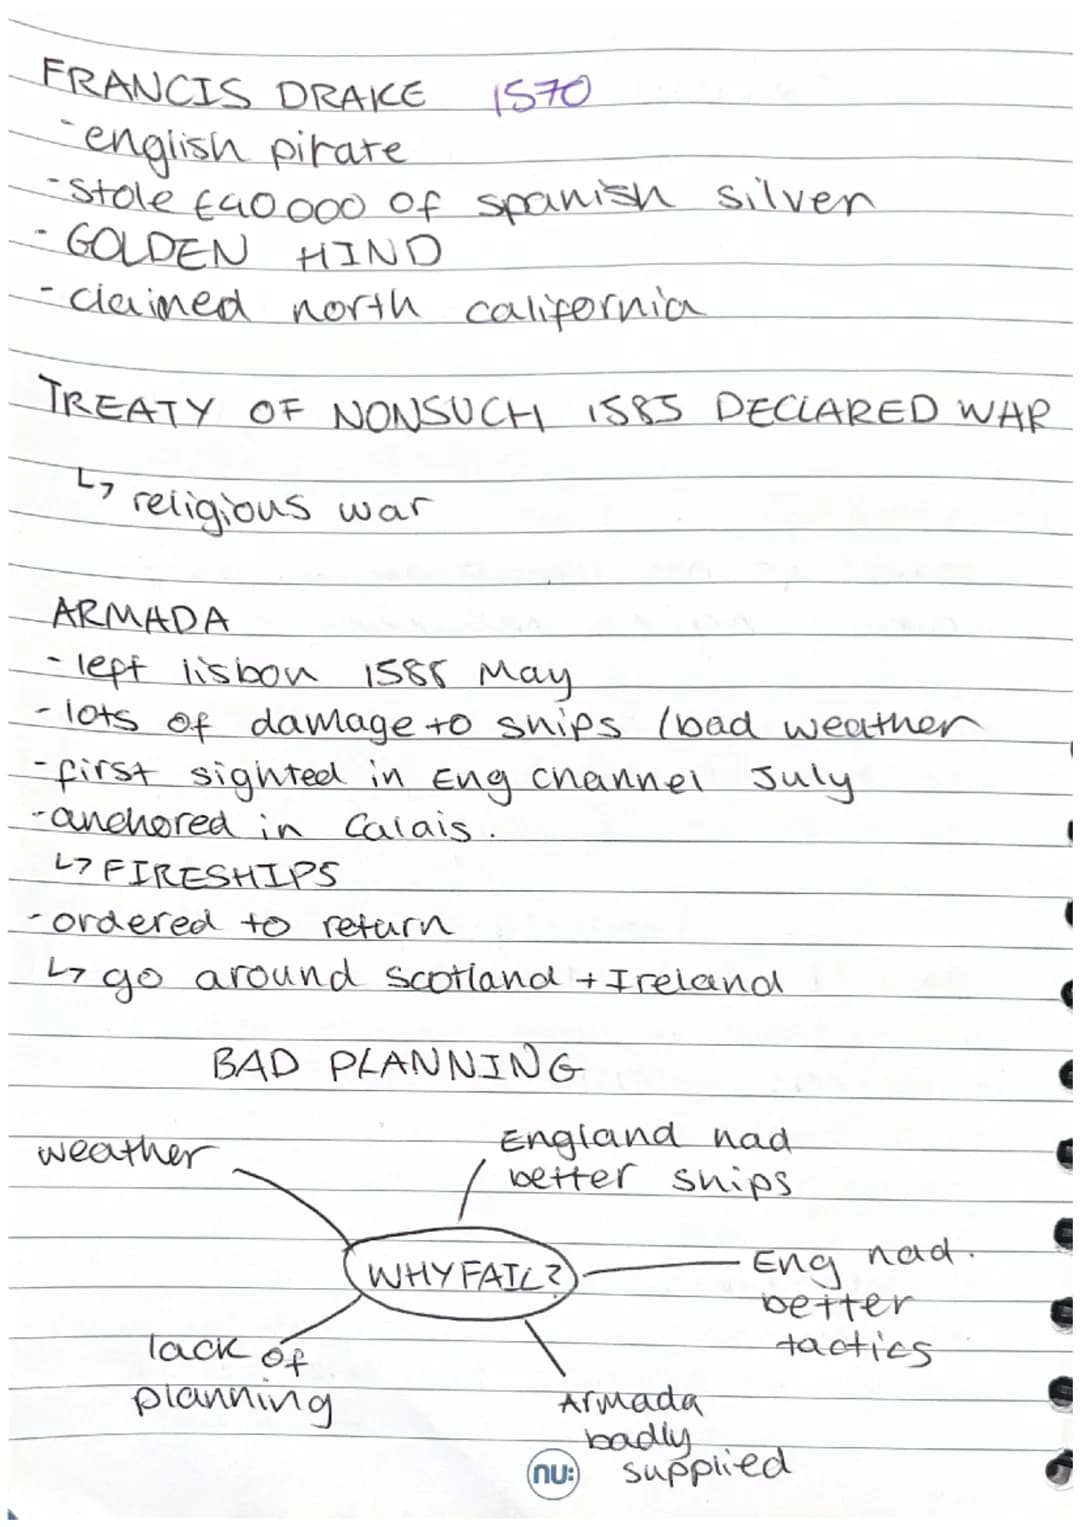 FRANCIS DRAKE 1570
- english pirate
- stole £40 000 of spanish silver
- GOLDEN HIND
- claimed north california
TREATY OF NONSUCH 1585 DECLARED WAR
↳ religious war
ARMADA
- left lisbon 1588 May
- lots of damage to ships / bad weather
- first sighted in Eng channel July
- anchored in Calais.
↳ FIRESHIPS
- ordered to return
↳ go around Scotland + Ireland
BAD PLANNING
weather
England had
better ships
WHY FAIL?
Eng had.
better
tactics
lack of
planning
Armada
badly
supplied
nu: